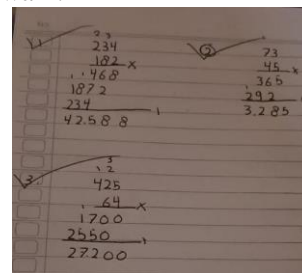 1.
2 3
234
182 x
468
1872
234
42.588
2
73
45 x
365
292
3.285
3.
3
1 2
425
64 x
1700
2550
27.200